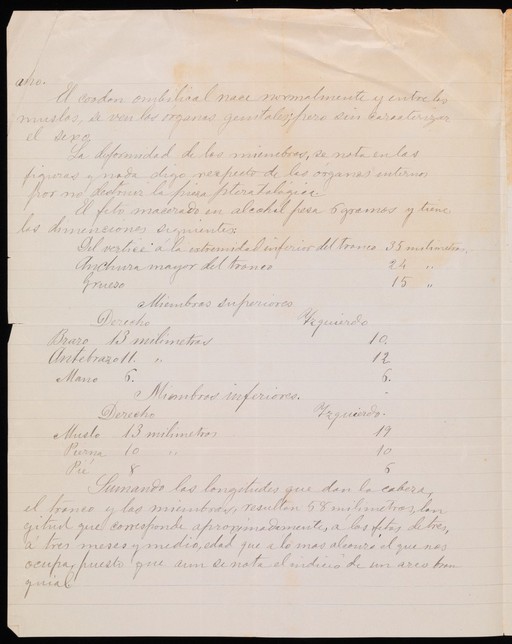 ano.
El cordon ombilical nace normalmente y entre los
muslos, se ven los organos genitales; pero sin caracterizar
el sexo,
La deformidad de los miembros, se nota en las
figuras y nada digo respecto de los órganos internos
por no destruir la pieza teratalógica.
El feto macerado en alcohol pesa 6 gramos y tiene
las dimenciones siguientes:
Del vertice á la extremidad inferior del tronco 35 milimetros,
Anchura mayor del tronco 24 "
Grueso 15 "
Miembros superiores
Derecho Izquierdo
Brazo 13 milimetros 10.
Antebrazo 11. " 12
Mano 6. 6.
Miembros inferiores.
Derecho Izquierdo.
Muslo 13 milimetros 19
Pierna 10 " 10
Pié 8 6
Sumando las longitudes que dan la cabeza,
el tronco y los miembros, resultan 58 milimetros, lon
gitud que corresponde aproximadamente, a los fetos de tres,
á tres meses y medio, edad que a lo mas alcanza el que nos
ocupa, puesto que aun se nota el indicio de un arco bran
quial